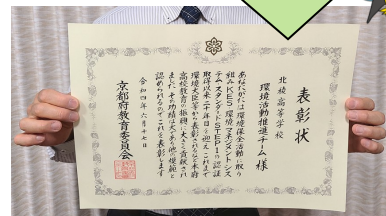 表彰状
北稜高等学校
環境活動推進チーム様
あなたがたは環境保全活動に取り
組みKES環境マネジメントシス
テム・スタンダードSTEP1の認証
取得以来二十年目を迎えこれまで
環境大臣等から表彰されるなど本府
高校教育の振興に大きく貢献され
ましたその功績は大であり他の模範と
認められるのでこれを表彰します
令和四年六月十七日
京都府教育委員会